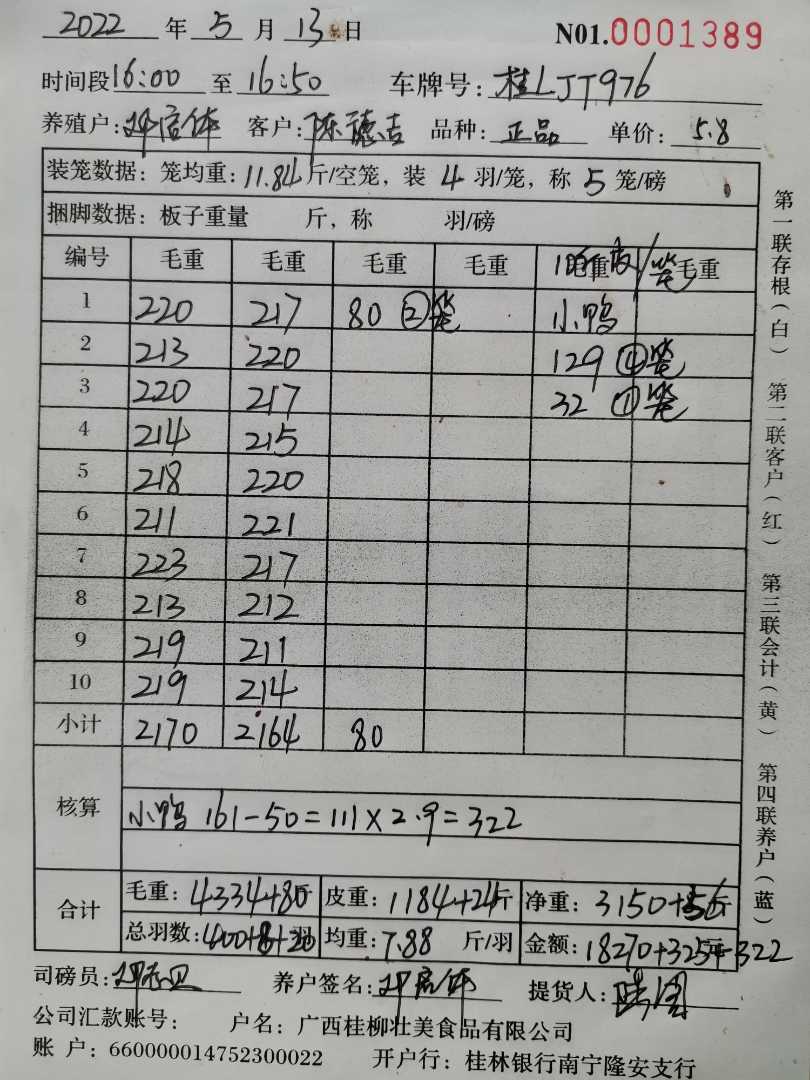 2022 年 5 月 13 日 N01.0001389
时间段16:00 至 16:50 车牌号:桂LJT976
养殖户: 客户:陈德吉 品种:正品 单价:5.8
装笼数据:笼均重:11.84斤/空笼,装 4 羽/笼,称 5 笼/磅
捆脚数据:板子重量 斤,称 羽/磅
编号 毛重 毛重 毛重 毛重 毛重 毛重
1 220 217 80 ②笼 小鸭
2 213 220 129 ④笼
3 220 217 32 ①笼
4 214 215
5 218 220
6 211 221
7 223 217
8 213 212
9 219 211
10 219 214
小计 2170 2164 80
核算 小鸭 161-50=111×2.9=322
合计 毛重:4334+80斤 皮重:1184+24斤 净重:3150+56斤
总羽数:400+8+20羽 均重:7.88 斤/羽 金额:18270+325元+322
司磅员: 养户签名: 提货人:
公司汇款账号: 户名:广西桂柳壮美食品有限公司
账 户:660000014752300022 开户行:桂林银行南宁隆安支行
第一联存根(白) 第二联客户(红) 第三联会计(黄) 第四联养户(蓝)